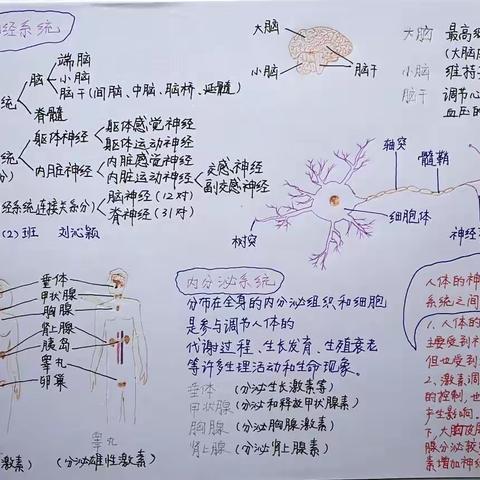 经系统
端脑
脑
小脑
脑干(间脑、中脑、脑桥、延髓)
统
脊髓
躯体神经
躯体感觉神经
躯体运动神经
统
分)
内脏神经
内脏感觉神经
内脏运动神经
交感神经
副交感神经
经系统连接关系分)
脑神经(12对)
脊神经(31对)
(2)班 刘沁颖
大脑
小脑
脑干
大脑 最高级
(大脑皮
小脑 维持
脑干 调节心
血压的
轴突
髓鞘
细胞体
树突
神经
垂体
甲状腺
胸腺
肾上腺
胰岛
睾丸
卵巢
睾丸
激素)
(分泌雄性激素)
内分泌系统
分布在全身的内分泌组织和细胞
是参与调节人体的
代谢过程、生长发育、生殖衰老
等许多生理活动和生命现象。
垂体 (分泌生长激素等)
甲状腺 (分泌和释放甲状腺素)
胸腺 (分泌胸腺激素)
肾上腺 (分泌肾上腺素)
人体的神
系统之间
1、人体的
主要受到神
但也受到
2、激素调
的控制,也
产生影响。
下,大脑皮
腺分泌较
素增加神经